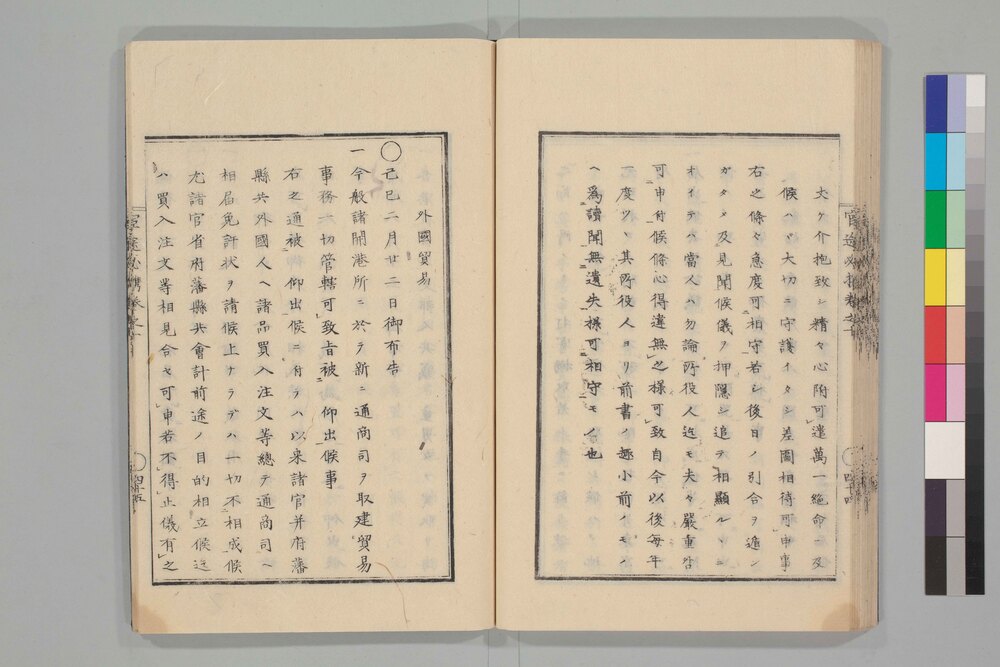 夫々介抱致シ精々心附可遣萬一絶命ニ及
候ハヾ大切ニ守護イタシ差圖相待可申事
右之條々急度可相守若シ後日ノ引合ヲ遁レン
ガタメ及見聞候儀ヲ押隱シ追テ相顯ルヽニ
オイテハ當人ハ勿論所役人迄モ夫々嚴重咎
可申付候條心得違無之様可致自今以後毎年
一度ツヽ其所役人ヨリ前書ノ趣小前モノ
ヘ爲讀聞無遺失樣可相守モノ也
四十四
外國貿易
〇己巳二月廿二日御布告
一今般諸開港所ニ於テ新ニ通商司ヲ取建貿易
事務一切管轄可致旨被仰出候事
右之通被仰出候ニ付テハ以来諸官并府藩
縣共外國人ヘ諸品買入注文等總テ通商司ヘ
相届免許状ヲ請候上ナラデハ一切不相成候
尤諸官省府藩縣共會計前途ノ目的相立候迄
ハ買入注文等相見合セ可申若不得止儀有之
四十五